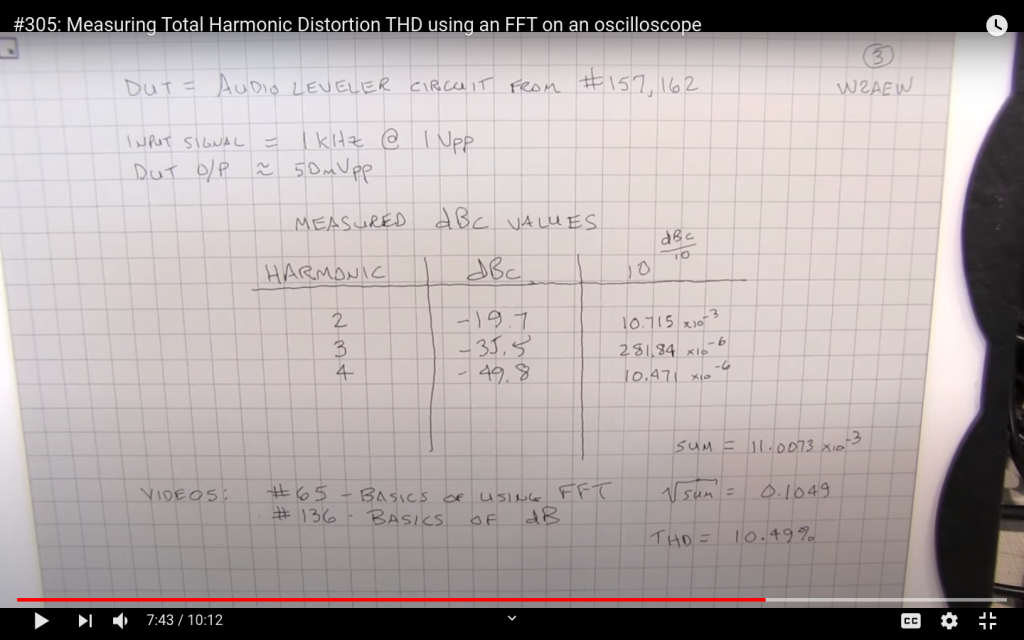 #305: Measuring Total Harmonic Distortion THD using an FFT on an oscilloscope
3
DUT = AUDIO LEVELER CIRCUIT FROM #157,162 W2AEW
INPUT SIGNAL = 1 kHz @ 1 Vpp
DUT O/P ≈ 50mVpp
MEASURED dBc VALUES
HARMONIC dBc 10^(dBc/10)
2 -19.7 10.715 x10^-3
3 -35.5 281.84 x10^-6
4 -49.8 10.471 x10^-6
SUM = 11.0073 x10^-3
VIDEOS: #65 - BASICS OF USING FFT √SUM = 0.1049
#136 - BASICS OF dB
THD = 10.49%
7:43 / 10:12
CC